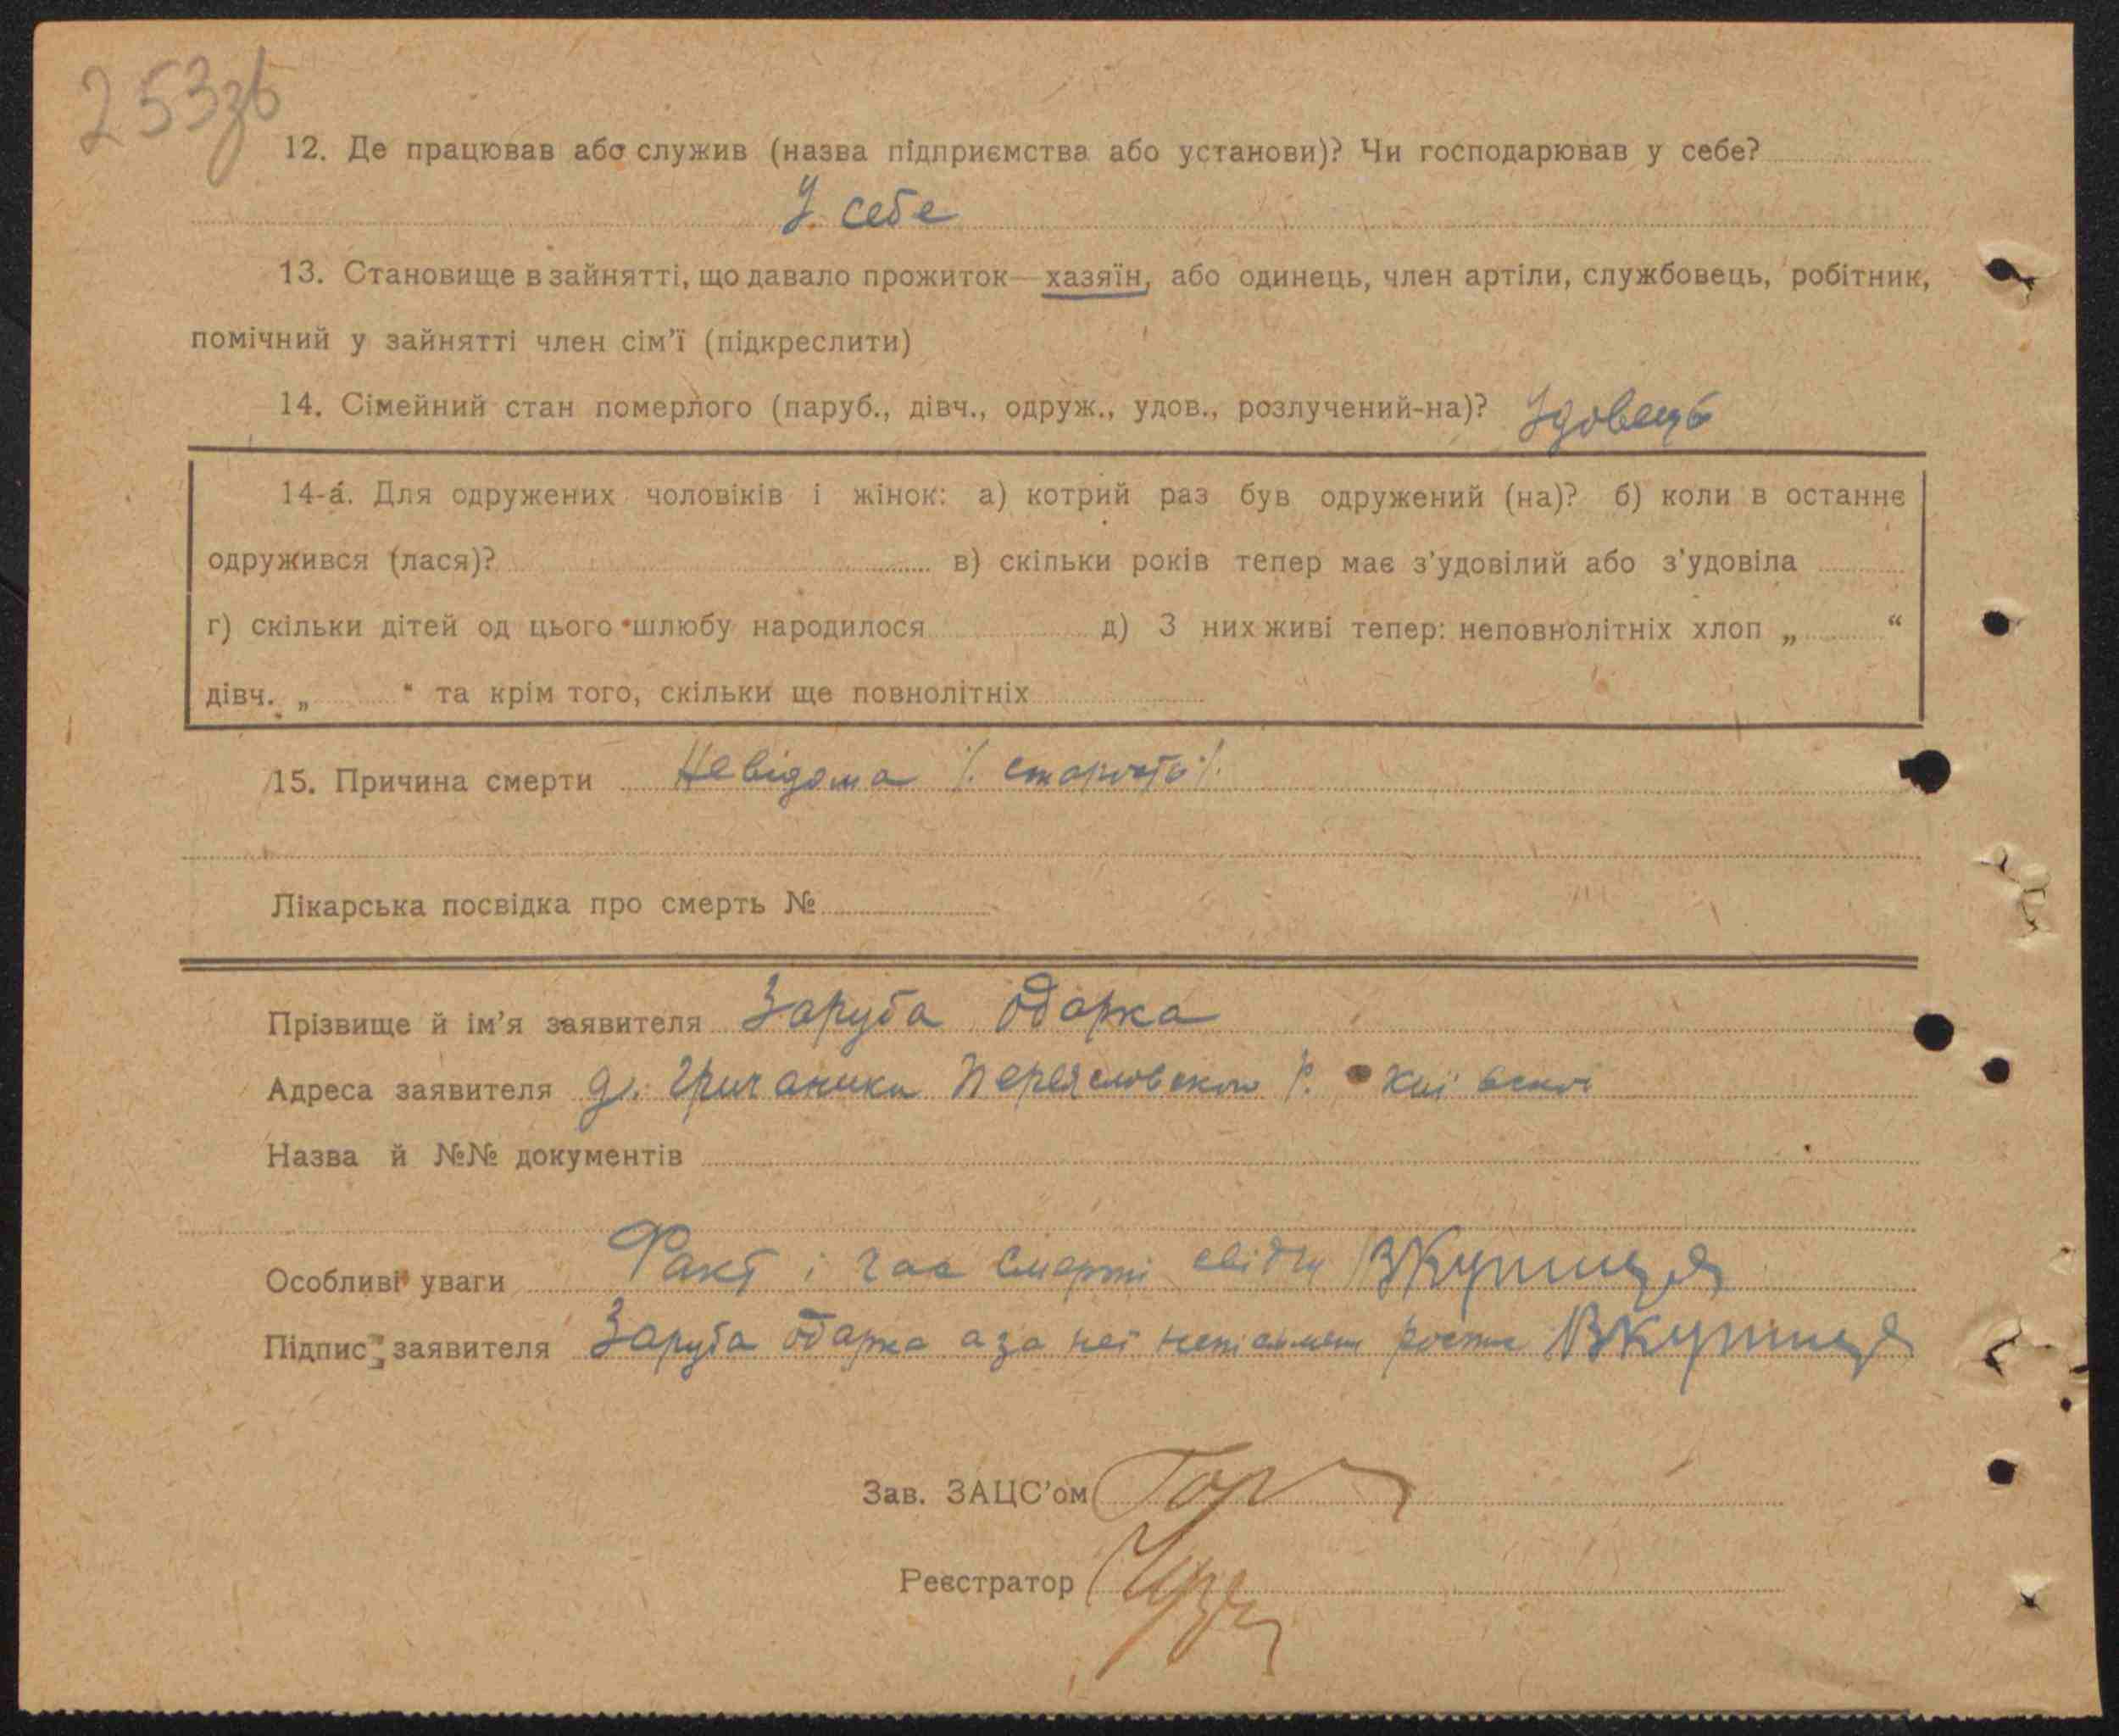 253зв
12. Де працював або служив (назва підприємства або установи)? Чи господарював у себе?
У себе
13. Становище в зайнятті, що давало прожиток—хазяїн, або одинець, член артіли, службовець, робітник,
помічний у зайнятті член сім'ї (підкреслити)
14. Сімейний стан померлого (паруб., дівч., одруж., удов., розлучений-на)? Удовець
14-а. Для одружених чоловіків і жінок: а) котрий раз був одружений (на)? б) коли в останнє
одружився (лася)? в) скільки років тепер має з'удовілий або з'удовіла
г) скільки дітей од цього шлюбу народилося д) З них живі тепер: неповнолітніх хлоп „ “
дівч. „ “ та крім того, скільки ще повнолітніх
15. Причина смерти Невідома /. старость ./.
Лікарська посвідка про смерть №
Прізвище й ім'я заявителя Заруба Одарка
Адреса заявителя д. Гречаники Переяславского р. Київської
Назва й №№ документів
Особливі уваги Факт і час смерті свідчу ВКуприця
Підпис заявителя Заруба Одарка а за неї неписьмен ВКуприця
Зав. ЗАЦС'ом
Реєстратор